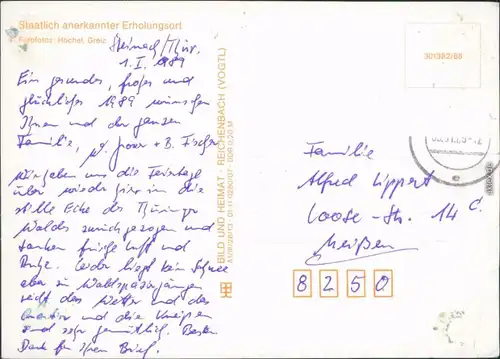 Staatlich anerkannter Erholungsort
Fotofotos: Höchel, Greiz
Steinach/Thür.
1.I.1989
Ein gesundes, frohes und
glückliches 1989 wünschen
Ihnen und der ganzen
Familie, B. Fischer
Wir haben uns die Feiertage
über wieder hier in die
stille Ecke des Thüringer
Waldes zurückgezogen und
tanken frische Luft und
Ruhe. Leider liegt kein Schnee
aber zu Waldspaziergängen
reicht das Wetter und das
Quartier und die Kneipen
sind sehr gemütlich. Besten
Dank für Ihren Brief.
BILD UND HEIMAT · REICHENBACH (VOGTL)
DDR 0,20 M
301382/88
Familie
Alfred Lippert
Loose-Str. 14 c.
Meißen
8250